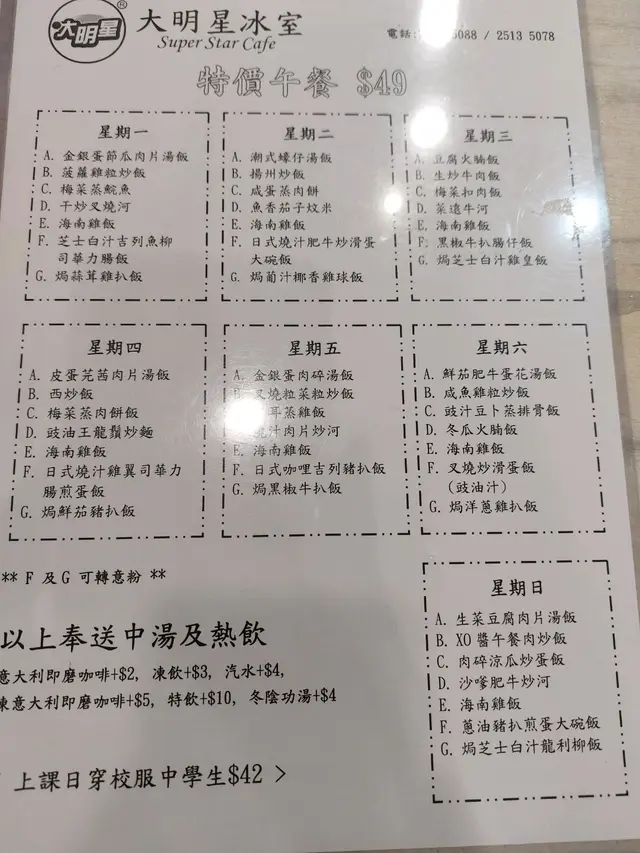 大明星
大明星冰室
Super Star Cafe
電話: 5088 / 2513 5078
特價午餐 $49
星期一
A. 金銀蛋節瓜肉片湯飯
B. 菠蘿雞粒炒飯
C. 梅菜蒸鯇魚
D. 干炒叉燒河
E. 海南雞飯
F. 芝士白汁吉列魚柳
司華力腸飯
G. 焗蒜茸雞扒飯
星期二
A. 潮式蠔仔湯飯
B. 揚州炒飯
C. 咸蛋蒸肉餅
D. 魚香茄子炆米
E. 海南雞飯
F. 日式燒汁肥牛炒滑蛋
大碗飯
G. 焗葡汁椰香雞球飯
星期三
A. 豆腐火腩飯
B. 生炒牛肉飯
C. 梅菜扣肉飯
D. 菜遠牛河
E. 海南雞飯
F. 黑椒牛扒腸仔飯
G. 焗芝士白汁雞皇飯
星期四
A. 皮蛋芫茜肉片湯飯
B. 西炒飯
C. 梅菜蒸肉餅飯
D. 豉油王龍鬚炒麵
E. 海南雞飯
F. 日式燒汁雞翼司華力
腸煎蛋飯
G. 焗鮮茄豬扒飯
星期五
A. 金銀蛋肉碎湯飯
叉燒粒菜粒炒飯
耳蒸雞飯
汁肉片炒河
E. 海南雞飯
F. 日式咖哩吉列豬扒飯
G. 焗黑椒牛扒飯
星期六
A. 鮮茄肥牛蛋花湯飯
B. 咸魚雞粒炒飯
C. 豉汁豆卜蒸排骨飯
D. 冬瓜火腩飯
E. 海南雞飯
F. 叉燒炒滑蛋飯
(豉油汁)
G. 焗洋蔥雞扒飯
** F 及 G 可轉意粉 **
以上奉送中湯及熱飲
意大利即磨咖啡+$2, 凍飲+$3, 汽水+$4,
凍意大利即磨咖啡+$5, 特飲+$10, 冬陰功湯+$4
上課日穿校服中學生$42 >
星期日
A. 生菜豆腐肉片湯飯
B. XO 醬午餐肉炒飯
C. 肉碎涼瓜炒蛋飯
D. 沙爹肥牛炒河
E. 海南雞飯
F. 蔥油豬扒煎蛋大碗飯
G. 焗芝士白汁龍利柳飯